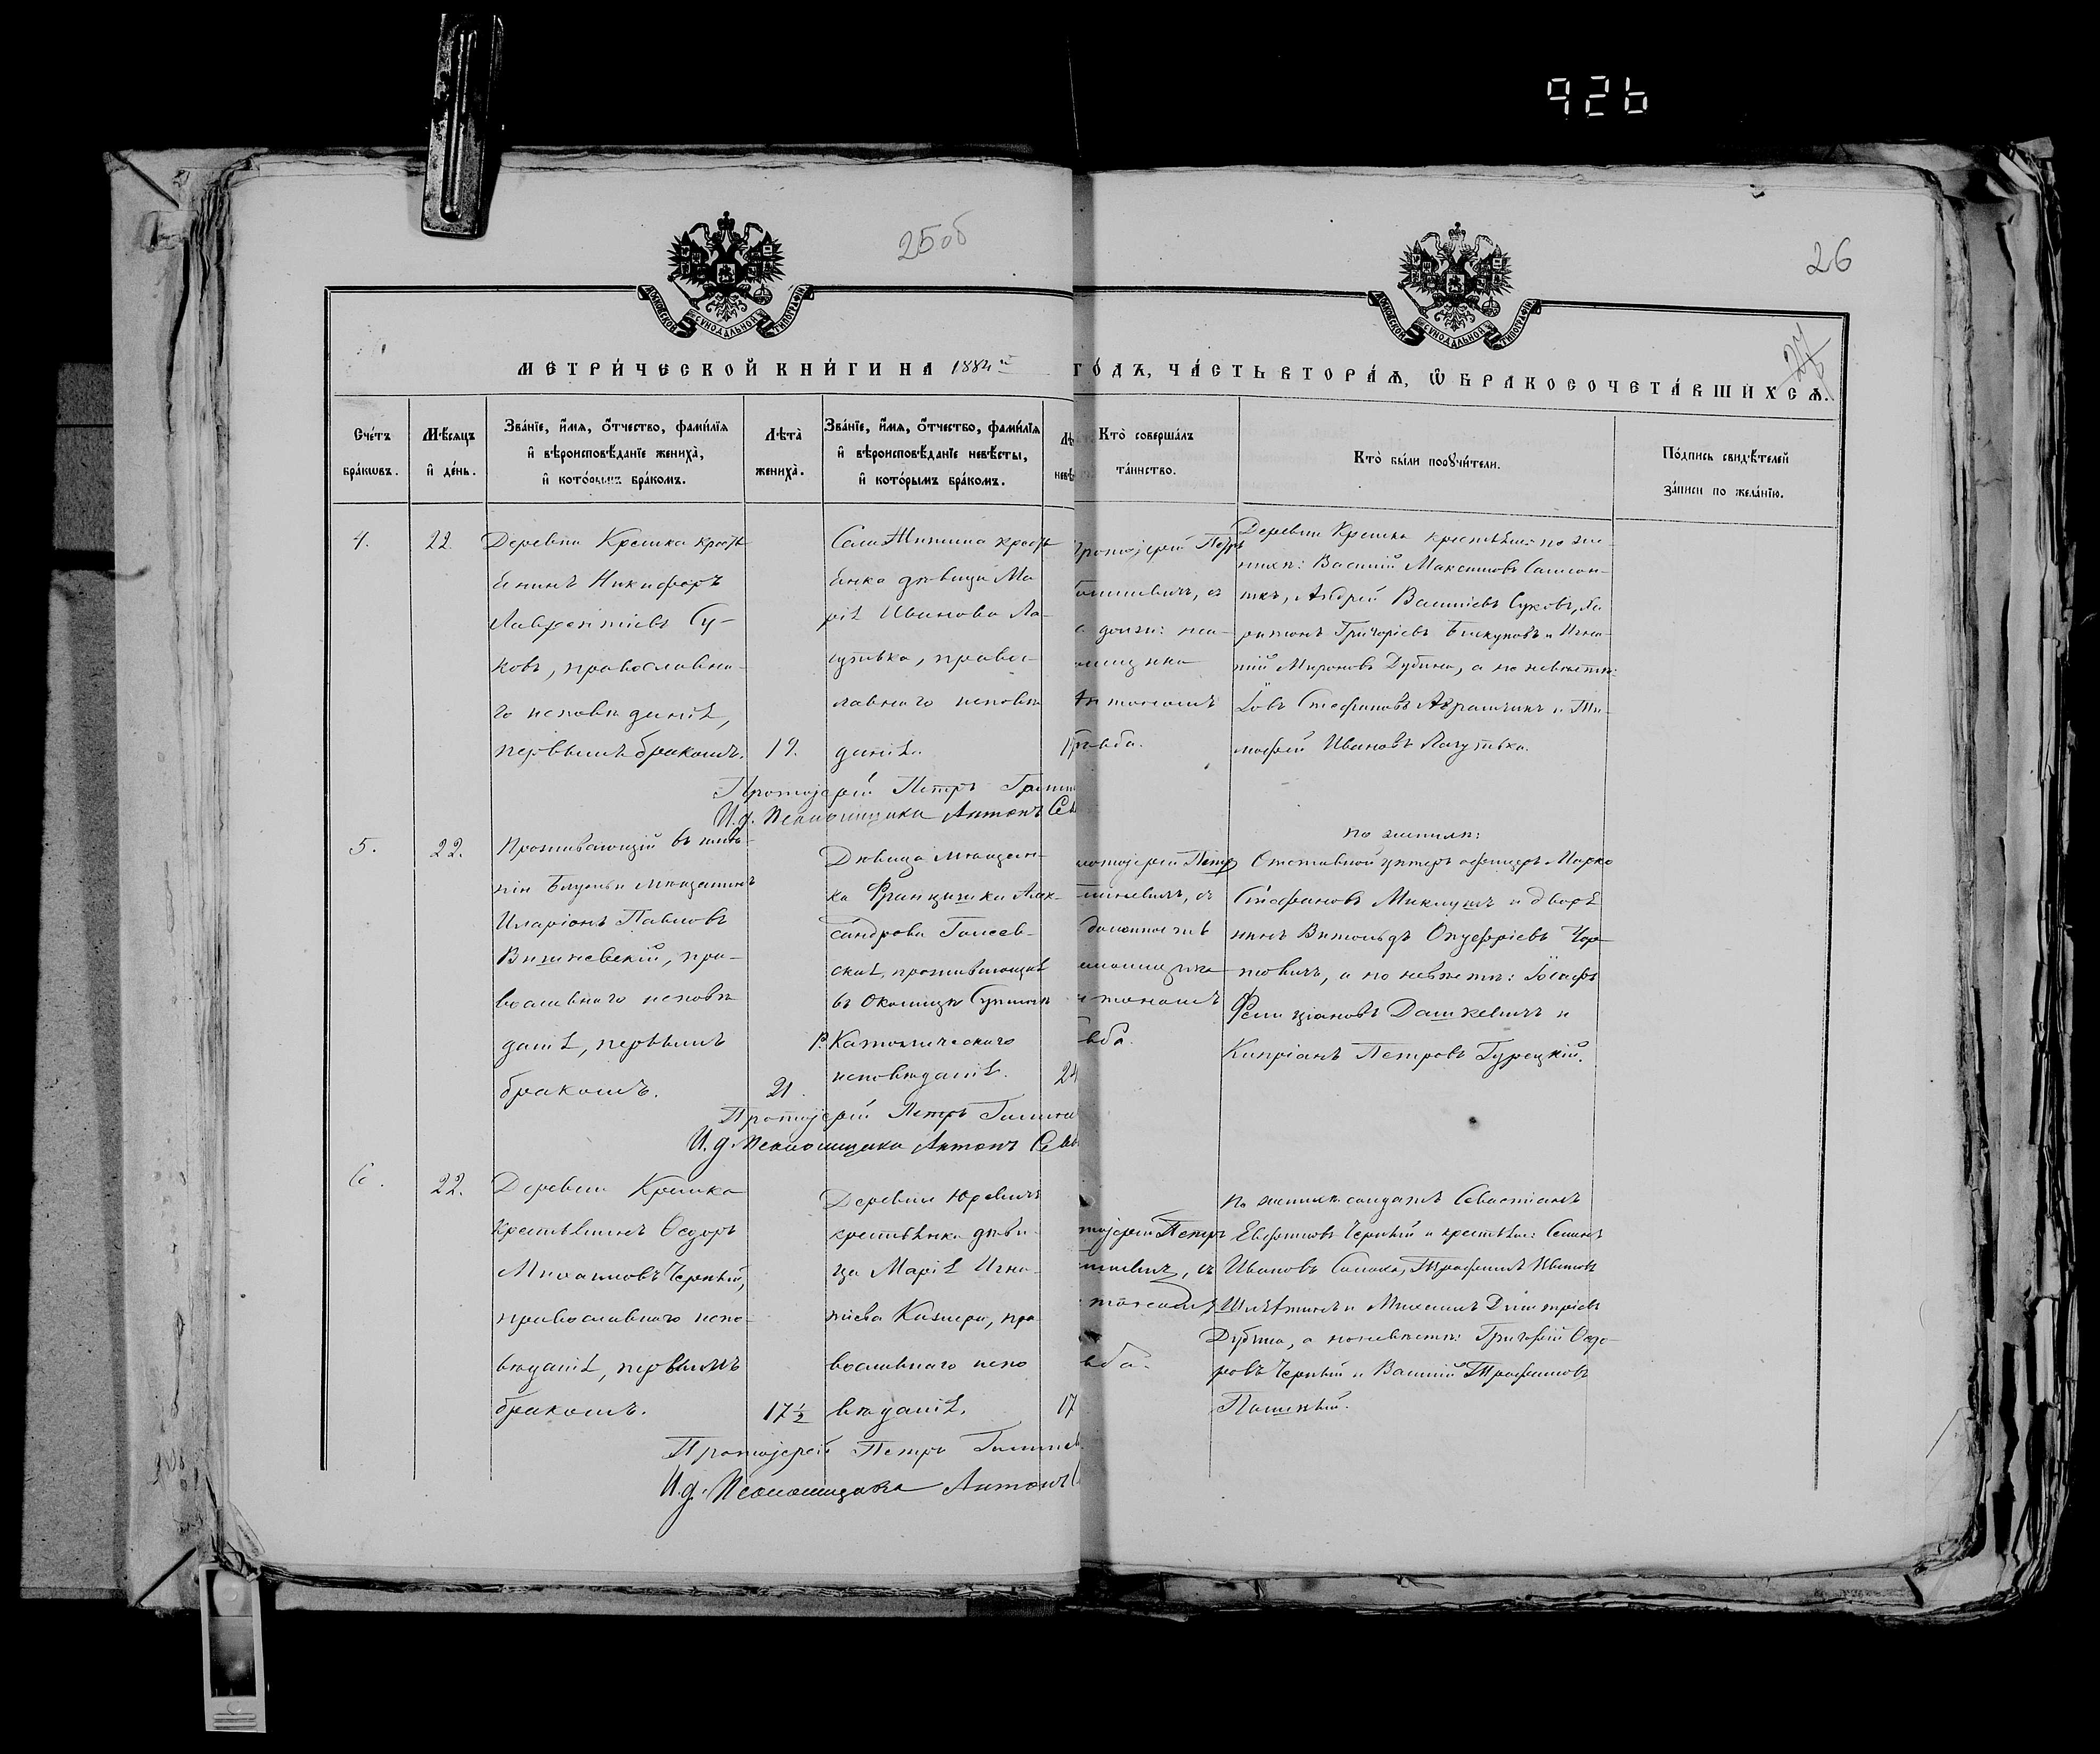 926
25об
26
27
МОСКОВСКОЙ СѴНОДАЛЬНОЙ ТИПОГРАФІИ
МОСКОВСКОЙ СѴНОДАЛЬНОЙ ТИПОГРАФІИ
МЕТРИ́ЧЕСКОЙ КНИ́ГИ НА 1884й ГО́ДЪ, ЧА́СТЬ ВТОРА́Ѧ, Ѽ БРАКОСОЧЕТА́ВШИХСѦ.
Сче́тъ
бра́кѡвъ.
Мѣ́сяцъ
и҆ де́нь.
Зва́нїе, и҆́мя, ѻ҆́тчество, фамѝлїя
и҆ вѣроисповѣ́данїе жениха̀,
и҆ кото́рымъ бра́комъ.
Лѣта̀
жениха̀.
Зва́нїе, и҆́мя, ѻ҆́тчество, фамѝлїя
и҆ вѣроисповѣ́данїе невѣ́сты,
и҆ кото́рымъ бра́комъ.
Лѣ
невѣ
Кто̀ соверша́лъ
та́инство.
Кто̀ бы́ли порꙋчи́тели.
По́дпись свидѣ́телей
за́писи по жела́нїю.
4.
22.
Деревни Кремка кресть
янинъ Никифоръ
Лаврентіевъ Су-
ковъ, православна-
го исповѣданія,
первымъ бракомъ.
19.
Села Житина кресть
янка дѣвица Ма
рія Иванова Ла-
гутька, правос-
лавнаго исповѣ
данія.
Протоіерей Петръ
и. должн: пса-
ломщика
Антономъ
Деревни Кремка крестьяне: по же-
нихѣ: Василій Максимовъ
Андрей Василіевъ Суковъ, Ха
ритонъ Григоріевъ и Игна-
тій Мироновъ Дубина, а по невѣстѣ:
Іовъ Стефановъ и Ти-
мофей Ивановъ Лагутька.
Протоіерей Петръ
И. д. Псаломщика Антонъ
5.
22.
Проживающій въ
мѣщанинъ
Иларіонъ Павловъ
Вишневскій, пра-
вославнаго исповѣ
данія, первымъ
бракомъ.
21.
Дѣвица мѣщан-
ка Францишка Алек-
сандрова
ская, проживающая
въ Околицѣ
Р. Католическаго
исповѣданія.
24
Протоіерей Петръ
съ
должность
псаломщика
Антономъ
по женихѣ:
Отставной унтеръ офицеръ Марко
Стефановъ и дворя
нинъ Витольдъ Онуфріевъ
а по невѣстѣ: Іосафъ
Фелиціановъ Дашкевичъ и
Кипріанъ Петровъ Турецкій.
Протоіерей Петръ
И. д. Псаломщика Антонъ
6.
22.
Деревни Кремка
крестьянинъ Ѳеодоръ
Михаиловъ Черный,
православнаго испо-
вѣданія, первымъ
бракомъ.
17½
Деревни Юревичъ
крестьянка дѣви-
ца Марія Игна-
тіева пра
вославнаго испо
вѣданія.
17
Петръ
съ
По женихѣ солдатъ Севастіанъ
Евфимовъ Черный и крестьян: Семенъ
Ивановъ Трофимъ Ивановъ
и Михаилъ Димитріевъ
Дубина, а по невѣстѣ: Григорій Ѳеодо-
ровъ Черный и Василій Трофимовъ
Протоіерей Петръ
И. д. Псаломщика Антонъ